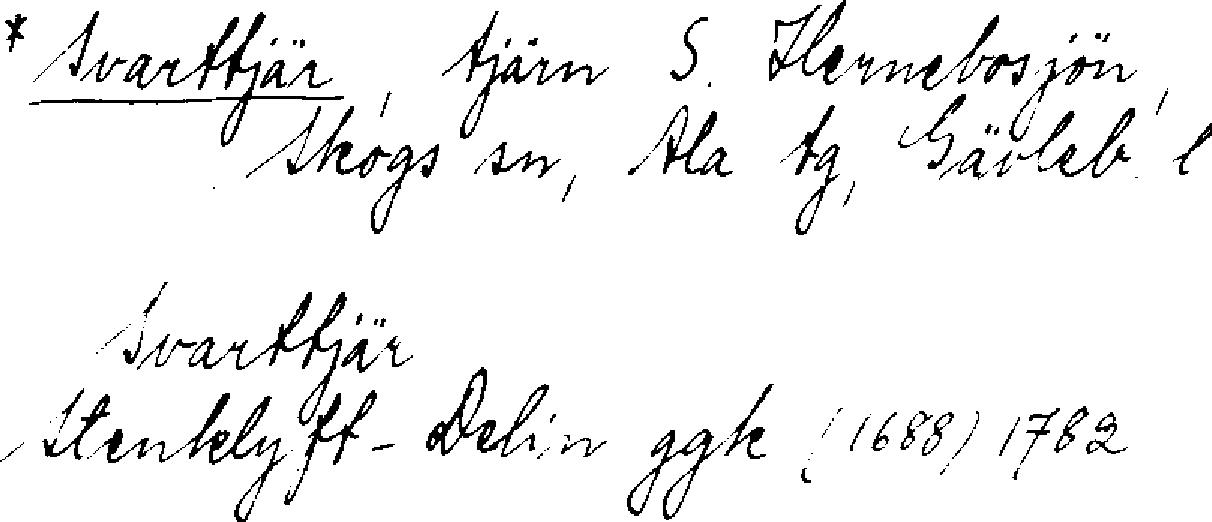 * Svarttjär, tjärn S. Hernebosjön,
Skogs sn, Ala tg, Gävleb. l
Svarttjär
Stenklyft-Delin ggk (1688) 1782